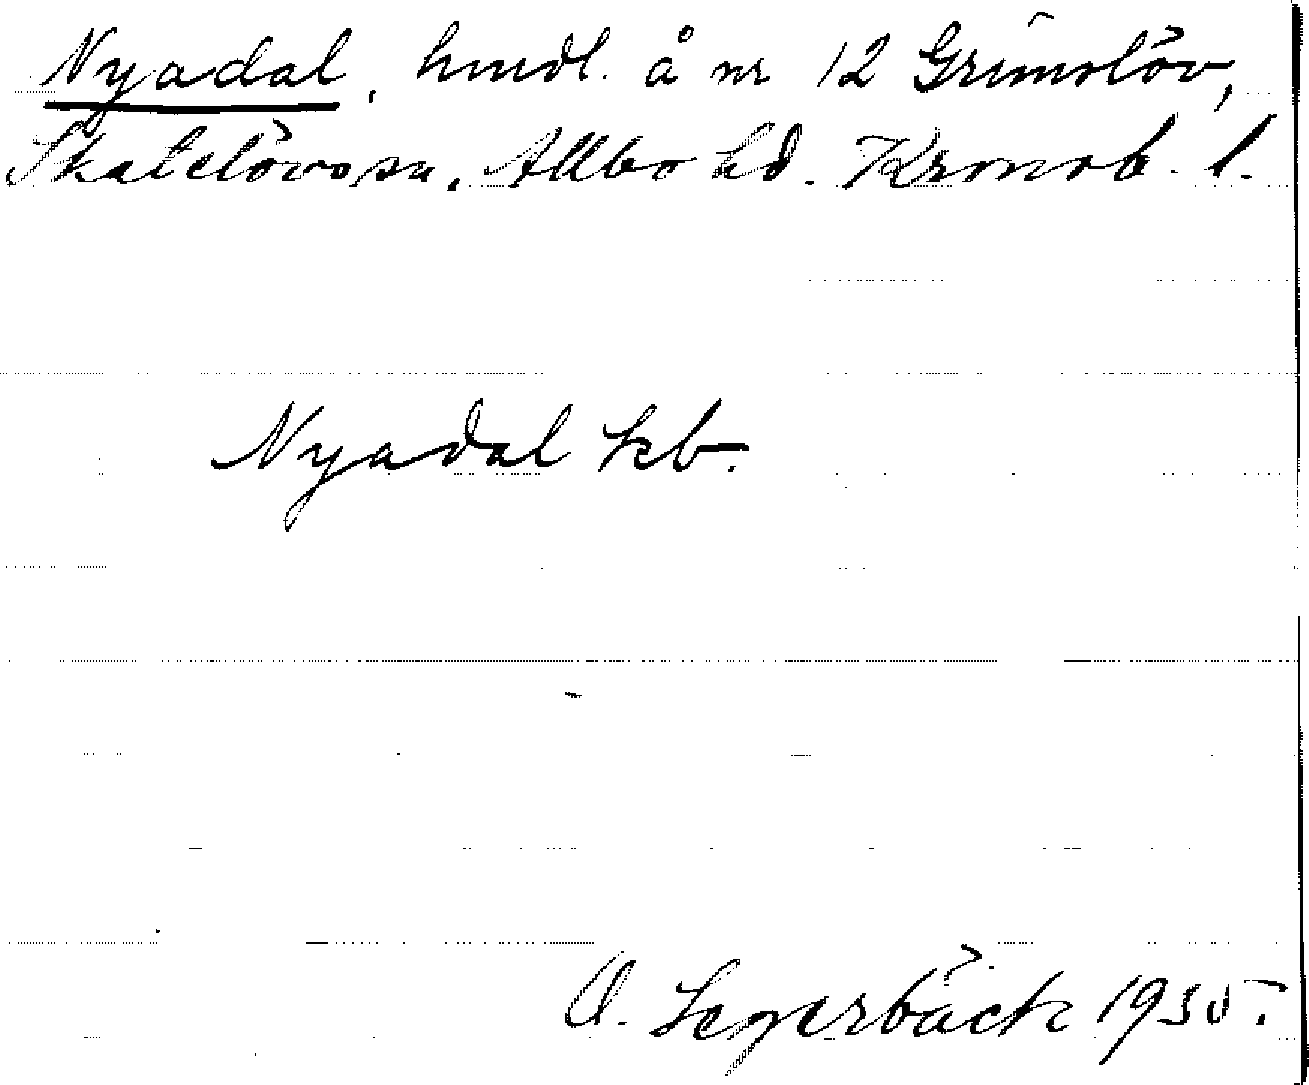 Nyadal, hmdl. å nr 12 Grimslöv,
Skatelövs sn, Allbo hd. Kronob. l.
Nyadal kb.
A. Segerbäck 1935.